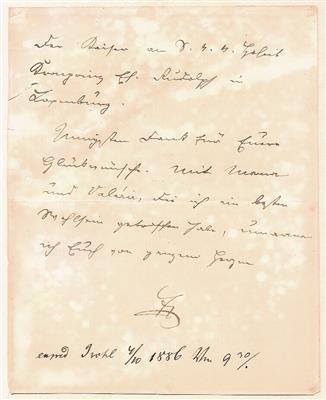 Der Kaiser an S. k. k. Hoheit
Kronprinz Eh. Rudolf in
Laxenburg.
Innigsten Dank für Euere
Glückwünsche. Mit Mama
und Valérie, die ich im besten
Wohlsein getroffen habe, umarme
ich Euch von ganzem Herzen
exped Ischl 4/10 1886 Um 9 30/.